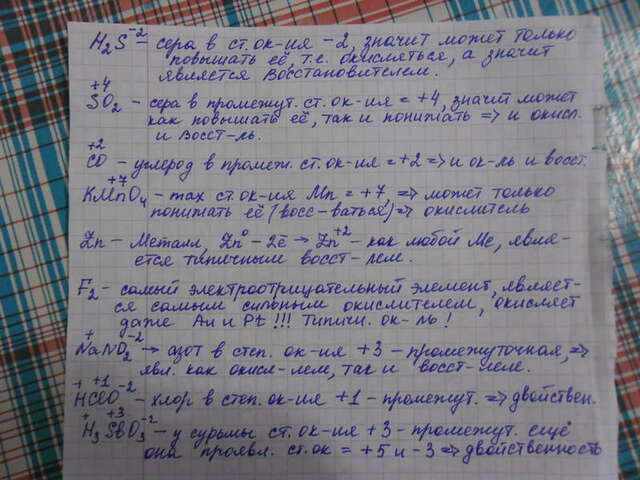 H₂S⁻² – сера в ст. ок-ия -2, значит может только
повышать её, т.е. окисляться, а значит
является восстановителем.
+4
SO₂ – сера в промежут. ст. ок-ия = +4, значит может
как повышать её, так и понижать => и окисл.
и восст-ль.
+2
CO – углерод в промеж. ст. ок-ия = +2 => и ок-ль и восст.
+7
KMnO₄ – max ст. ок-ия Mn = +7, => может только
понижать её (восс-ваться) => окислитель
Zn – Металл, Zn⁰ – 2ē → Zn⁺² – как любой Ме, явля-
ется типичным восст-лем.
F₂ – самый электроотрицательный элемент, являет-
ся самым сильным окислителем, окисляет
даже Au и Pt!!! Типичн. ок-ль!
+ -2
NaNO₂ → азот в степ. ок-ия +3 – промежуточная, =>
явл. как окисл-лем, так и восст-лем.
+ +1 -2
HClO – хлор в степ. ок-ия +1 – промежут. => двойствен.
+ +3 -2
H₃SbO₃ – у сурьмы ст. ок-ия +3 – промежут. ещё
она проявл. ст. ок = +5 и -3 => двойственность